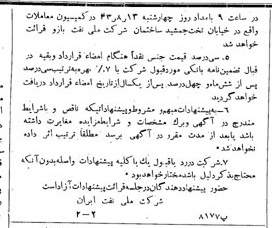 در ساعت ۹ بامداد روز چهارشنبه ۱۳ر۸ر۴۳ در کمیسیون معاملات
واقع در خیابان تخت‌جمشید ساختمان شرکت ملی نفت بازو قرائت
خواهد شد
۵ـ سی‌درصد قیمت جنس نقداً هنگام امضاء قرارداد و بقیه در
قبال تضمین‌نامه بانکی مورد قبول شرکت با ۷٪ بهره به‌ترتیب سی‌درصد
پس از شش‌ماه و چهل درصد پس از یکسال از تاریخ امضاء قرارداد دریافت
خواهد گردید
۶ـ به پیشنهادات مبهم و مشروط و پیشنهاداتیکه ناقص و با شرایط
مندرج در آگهی و برگ مشخصات و شرایط مزایده مغایرت داشته
باشد یا بعد از مدت مقرر در آگهی برسد مطلقاً ترتیب اثر داده
نخواهد شد
۷ـ شرکت در رد یا قبول یک یا کلیه پیشنهادات واصله بدون آنکه
محتاج بذکر دلیل باشد مختار خواهد بود
حضور پیشنهاد دهندگان در جلسه قرائت پیشنهادات آزاد است
شرکت ملی نفت ایران
پ ۸۱۷۷ ۲ـ۲